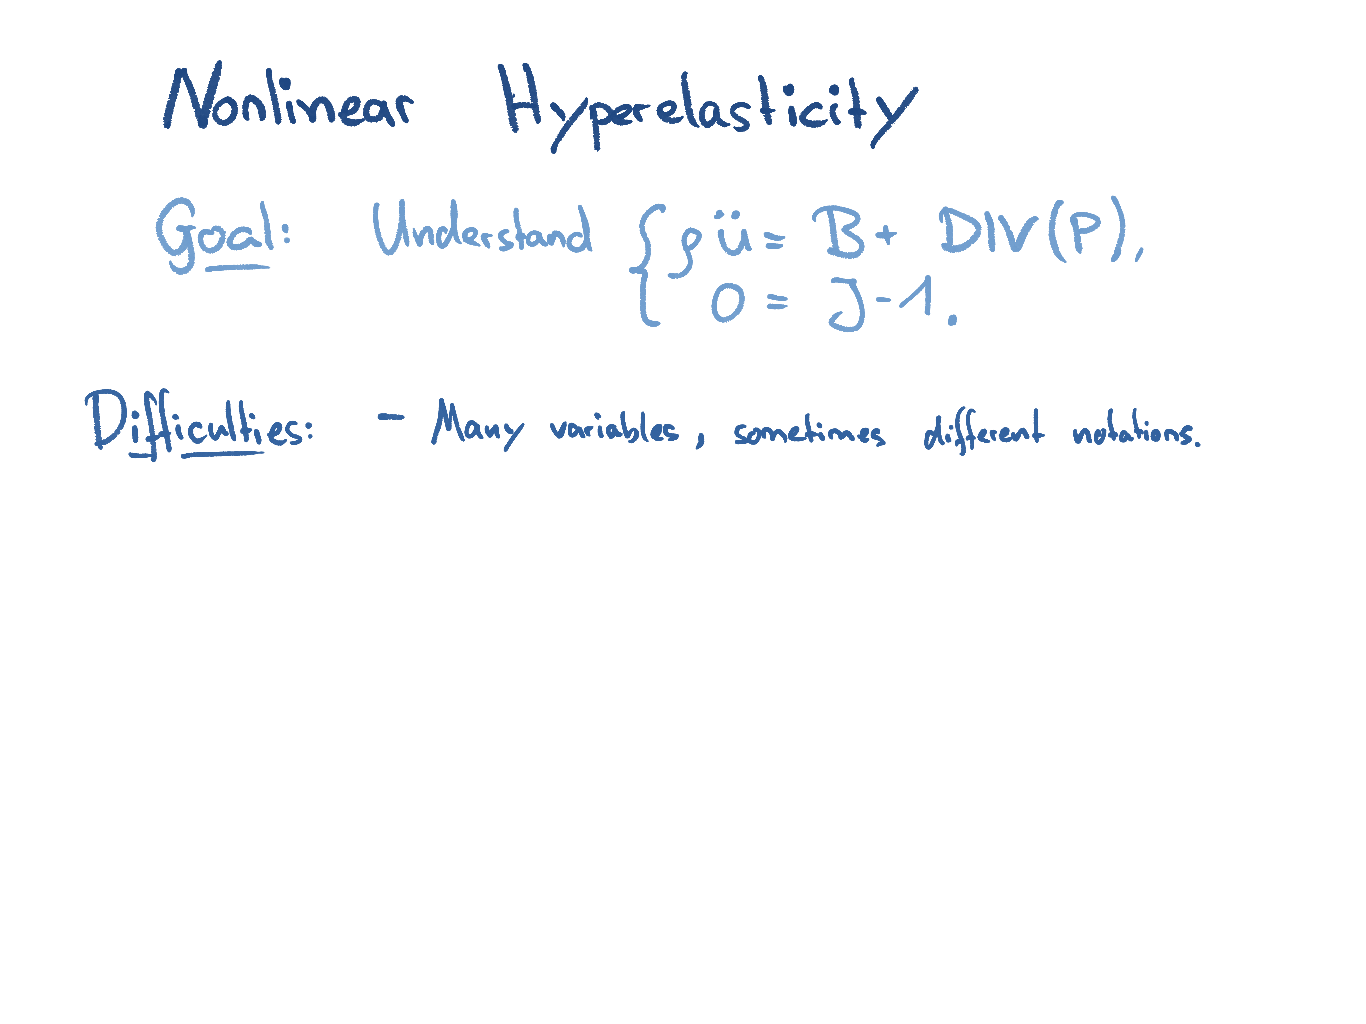 Nonlinear Hyperelasticity
Goal: Understand { ρ ü = B + DIV(P),
0 = J - 1.
Difficulties: - Many variables, sometimes different notations.